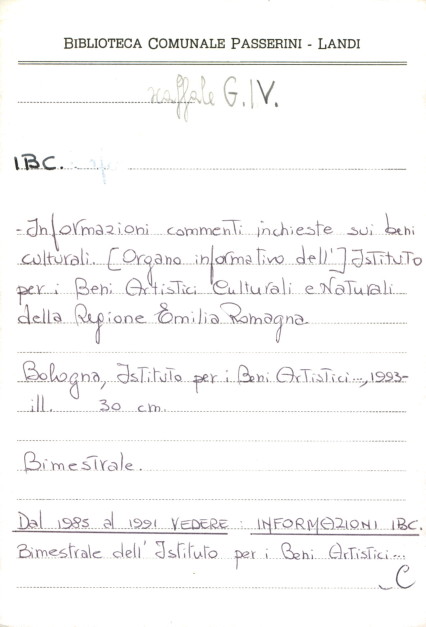 BIBLIOTECA COMUNALE PASSERINI - LANDI
scaffale G.IV.
I.B.C.
- Informazioni commenti inchieste sui beni
culturali. [Organo informativo dell'] Istituto
per i Beni Artistici Culturali e Naturali
della Regione Emilia Romagna
Bologna, Istituto per i Beni Artistici..., 1993-
ill. 30 cm.
Bimestrale.
Dal 1985 al 1991 VEDERE : INFORMAZIONI IBC.
Bimestrale dell' Istituto per i Beni Artistici...
C